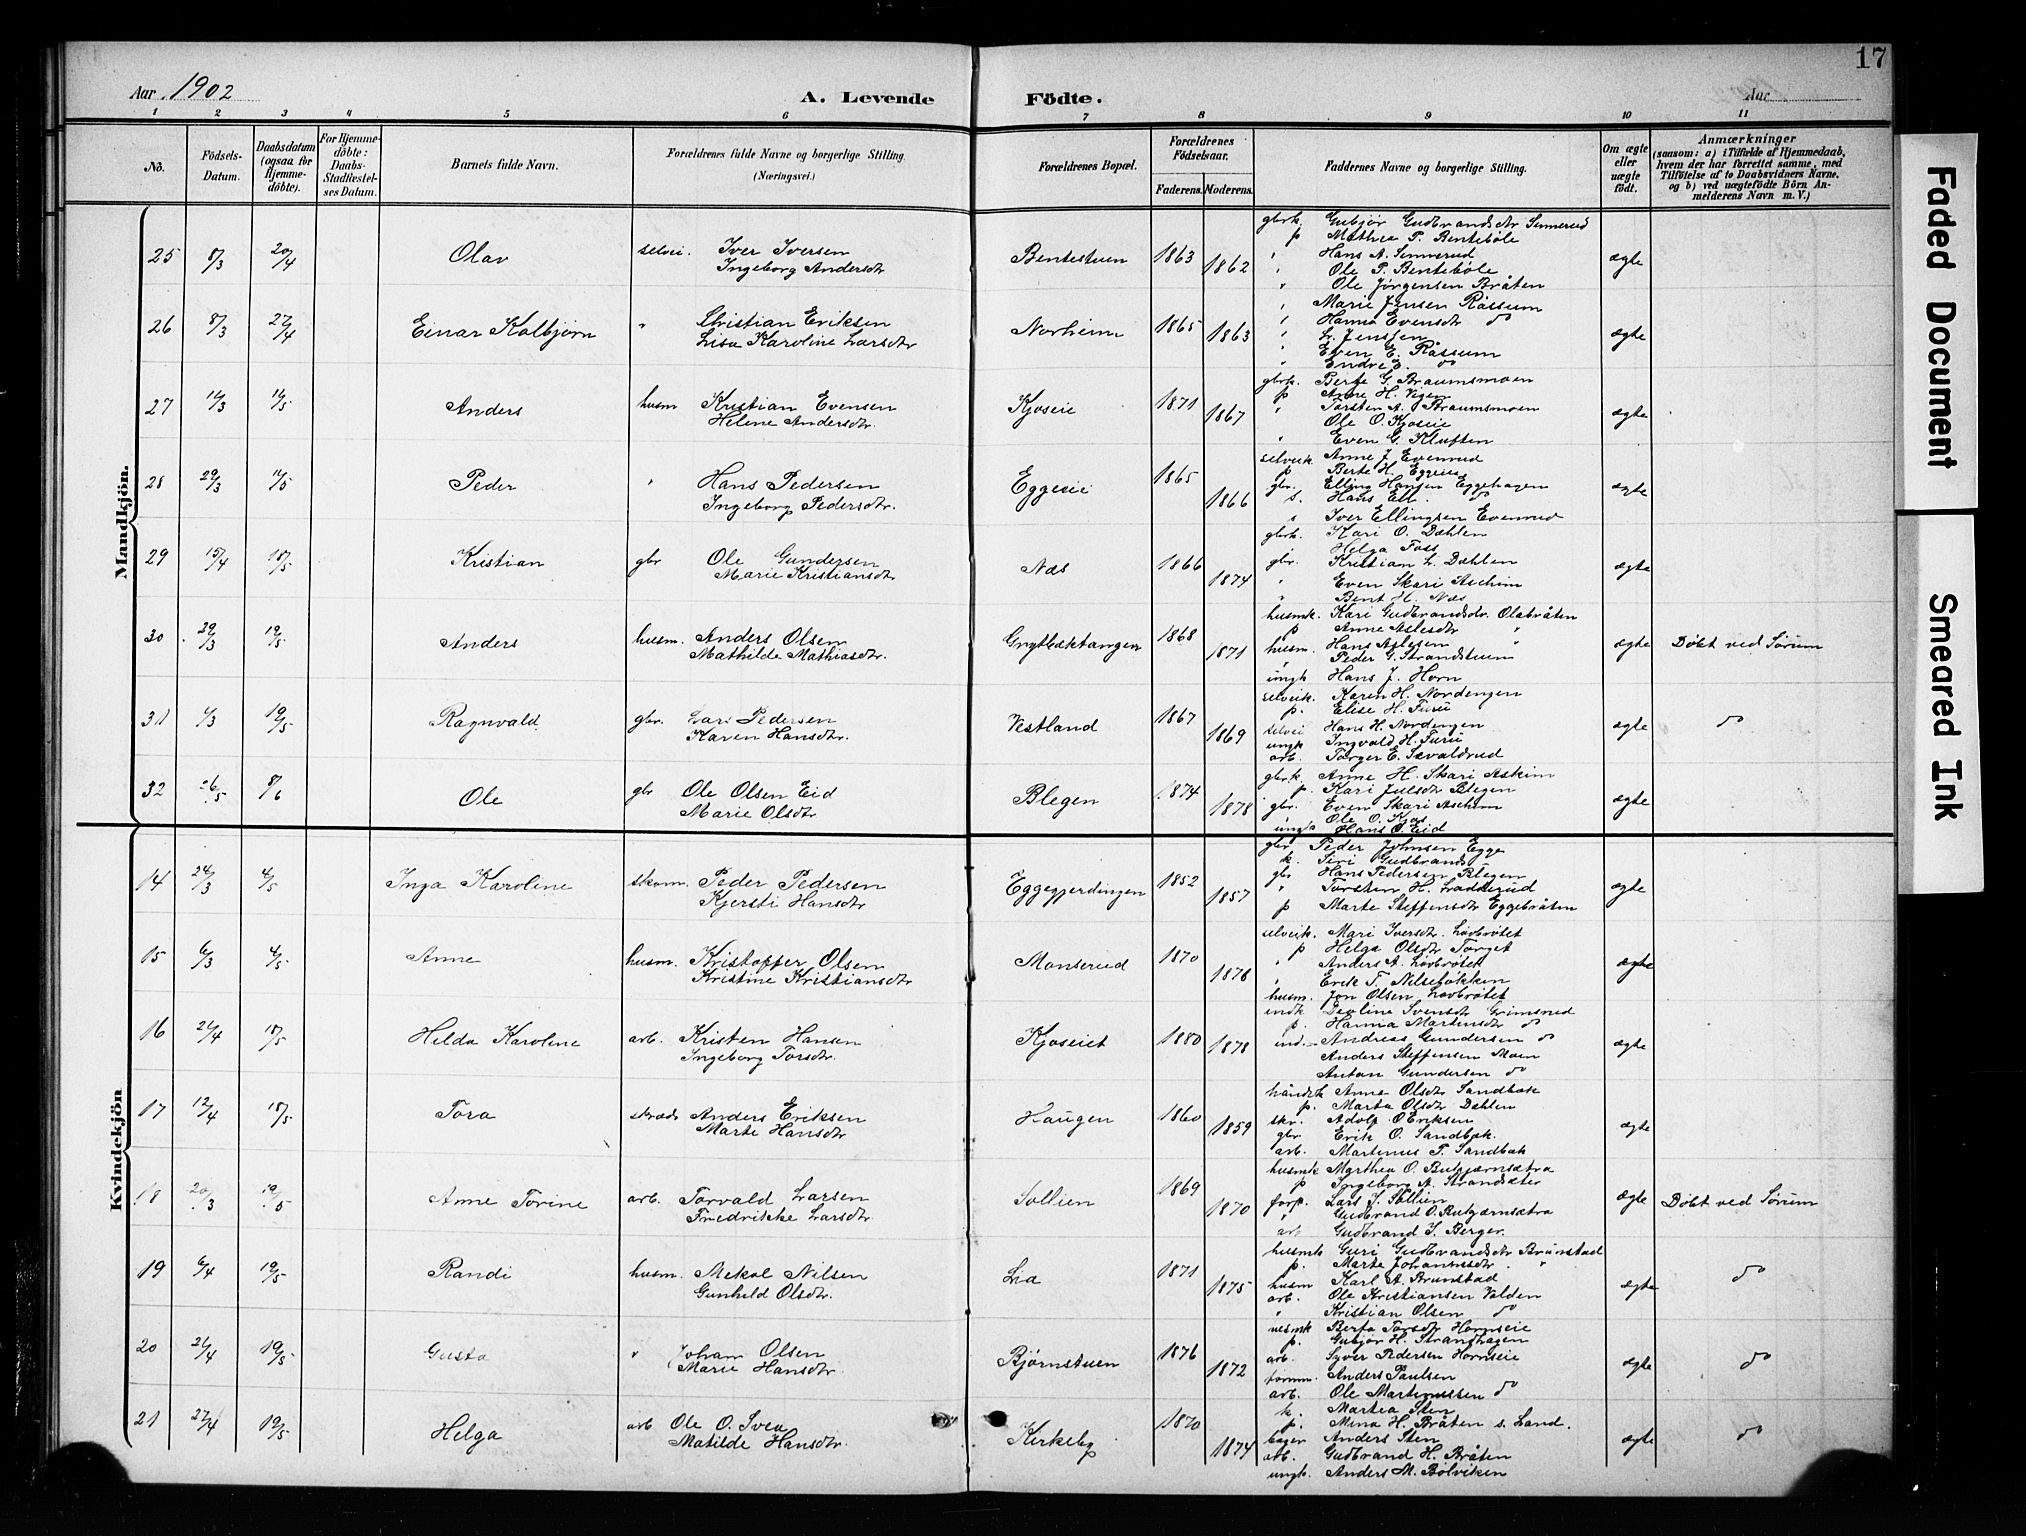 17
Aar 1902 A. Levende Födte. Aar
1 2 3 4 5 6 7 8 9 10 11
No. Födsels-Datum. Daabsdatum (ogsaa for Hjemmedöbte). For Hjemmedöbte: Daabs-Stadfestelses Datum. Barnets fulde Navn. Forældrenes fulde Navne og borgerlige Stilling. (Næringsvei.) Forældrenes Bopæl. Forældrenes Födselsaar. Faderens. Moderens. Faddernes Navne og borgerlige Stilling. Om ægte eller uægte födt. Anmærkninger (saasom: a) i Tilfælde af Hjemmedaab, hvem der har forrettet samme, med Tilföielse af to Daabsvidners Navne, og b) ved uægtefödte Börn Anmelderens Navn m. V.)
Mandkjön.
25 8/3 20/4 Olav selvei. Iver Iversen
Ingeborg Andersdtr Bentestuen 1863 1862 ægte
gbrk. Gubjør Gudbrandsdtr Sinnerud
p Mathea P. Bentebøle
Hans A. Sinnerud
Ole P. Bentebøle
Ole Jørgensen Bråten
26 8/3 27/4 Einar Kolbjørn " Christian Eriksen
Lisa Karoline Larsdtr Norheim 1865 1863 ægte
Marie Jensen Råssum
Hanna Evensdtr do
L. Jenssen
Even E. Råssum
Endre E. do
27 Anders husm Kristian Evensen
Helene Andersdtr. Kjoseie 1871 1867 ægte
gbrk. Berte G. Braumsmoen
p Anne H. Vigen
" Torsten A. Braumsmoen
Ole O. Kjoseie
" Even G. Kluften
28 29/3 Peder " Hans Pedersen
Ingeborg Pedersdtr. Eggeeie 1865 1866 ægte
selveik. Anne J. Evenrud
p Berte H. Eggeeie
gbr. Elling Hansen Eggehagen
s. Hans Ell. do
s Iver Ellingsen Evenrud
29 15/4 18/5 Kristian gbr Ole Gundersen
Marie Kristiansdtr Næs 1866 1874 ægte
gbrk. Kari O. Dæhlen
Helga Foss
gbr. Kristian L. Dæhlen
" Even Skari Aschim
" Bent H. Næs
30 29/3 19/5 Anders husm. Anders Olsen
Mathilde Mathiasdtr. Grytbæktangen 1868 1871 ægte Døbt ved Sørum
husmk. Kari Gudbrandsdtr. Olabråten
p Anne Aslesdtr "
husm. Hans Aslesen "
" Peder G. Strandstuen
ungk Hans J. Horn
31 1/3 19/5 Ragnvald gbr. Lars Pedersen
Karen Hansdtr. Vestland 1867 1869 ægte do
selveik. Karen H. Nordengen
p. Elise H. Furu
selvei Hans H. Nordengen
ungk Ingvald H. Furu
arb. Torger E. Sevaldrud
32 26/5 8/6 Ole gbr Ole Olsen Eid
Marie Olsdtr Blegen 1874 1878 ægte
gbrk. Anne H. Skari Askim
p. Kari Julsdtr Blegen
gbr. Even Skari Aschim
" Ole O. Kjos
ungk Hans O. Eid
Kvindekjön
14 24/3 4/5 Inga Karoline skom. Peder Pedersen
Kjersti Hansdtr Eggegjerdingen 1852 1857 ægte
gbr Peder Johnsen Egge
k. Siri Gudbrandsd
gbr Hans Pedersen Blegen
" Torsten H. Ladderud
p Marte Steffensdtr Eggebråten
15 6/3 4/5 Anne husm. Kristoffer Olsen
Kristine Kristiansdtr Monserud 1870 1876 ægte
selveik. Mari Iversdtr. Løvbrøtet
p Helga Olsdtr Torget
" Anders A. Løvbrøtet
" Erik T. Nilsebakken
husm. Jon Olsen Løvbrøtet
16 21/4 18/5 Hilda Karoline arb. Kristen Hansen
Ingeborg Torsdtr. Kjoseiet 1880 1878 ægte
indk Deoline Svensdtr Grimsrud
p. Hanna Martensdtr do
ind. Andreas Gundersen do
Anders Steffensen Moen
Anton Gundersen do
17 12/4 18/5 Tora skræd. Anders Eriksen
Marte Hansdtr Haugen 1860 1859 ægte
håndtk Anne Olsdtr Sandbæk
p. Marta Olsdtr Dæhlen
skr. Adolf O Eriksen
gbr Erik O. Sandbæk.
arb. Martinus P. Sandbæk
18 20/3 19/5 Anne Torine arb. Torvald Larsen
Fredrikke Larsdtr. Sollien 1869 1870 ægte Døbt ved Sørum
husmk Marthea O. Bubjærnsætra
p Ingeborg A. Strandsæter
forp. Lars J. Sollien
" Gudbrand O. Bubjærnsætra
arb Gudbrand J. Berger.
19 6/4 19/5 Randi husm. Mekal Nilsen
Gunhild Olsdtr. Lia 1871 1875 ægte do
husmk Guri Gudbrandsdtr Brunstad
p. Marte Johannesdtr. "
husm Karl A. Brunstad
arb. Ole Kristiansen Valden
" Kristian Olsen do
20 21/4 19/5 Gusta " Johan Olsen
Marie Hansdtr. Bjørnstuen 1876 1872 ægte do
husmk Berta Torsdtr Hornseie
p. Gubjør H. Strandhagen
arb. Syver Pedersen Hornseie
tømm. Anders Paulsen
arb. Ole Martinussen do
21 27/4 19/5 Helga arb Ole O. Svea
Matilde Hansdtr. Kirkeby 1870 1874 ægte do
k. Martea Sten
p. Mina H. Bråten s. Land.
bager Anders Sten
arb. Gudbrand H. Bråten
ungk. Anders M. Bølviken
Faded Document
Smeared Ink